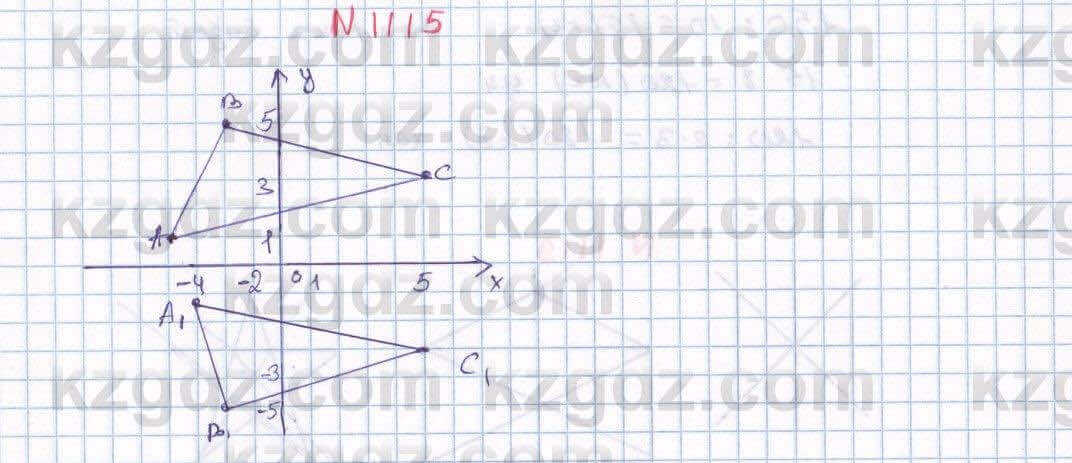 N1115
y
B
5
C
3
A 1
-4 -2 0 1 5 x
A1
C1
-3
-5
B1
kzgdz.com kzgdz.com kzgdz.com
kzgdz.com
kzgdz.com kzgdz.com kzgdz.com
kzgdz.com
kzgdz.com kzgdz.com kzgdz.com